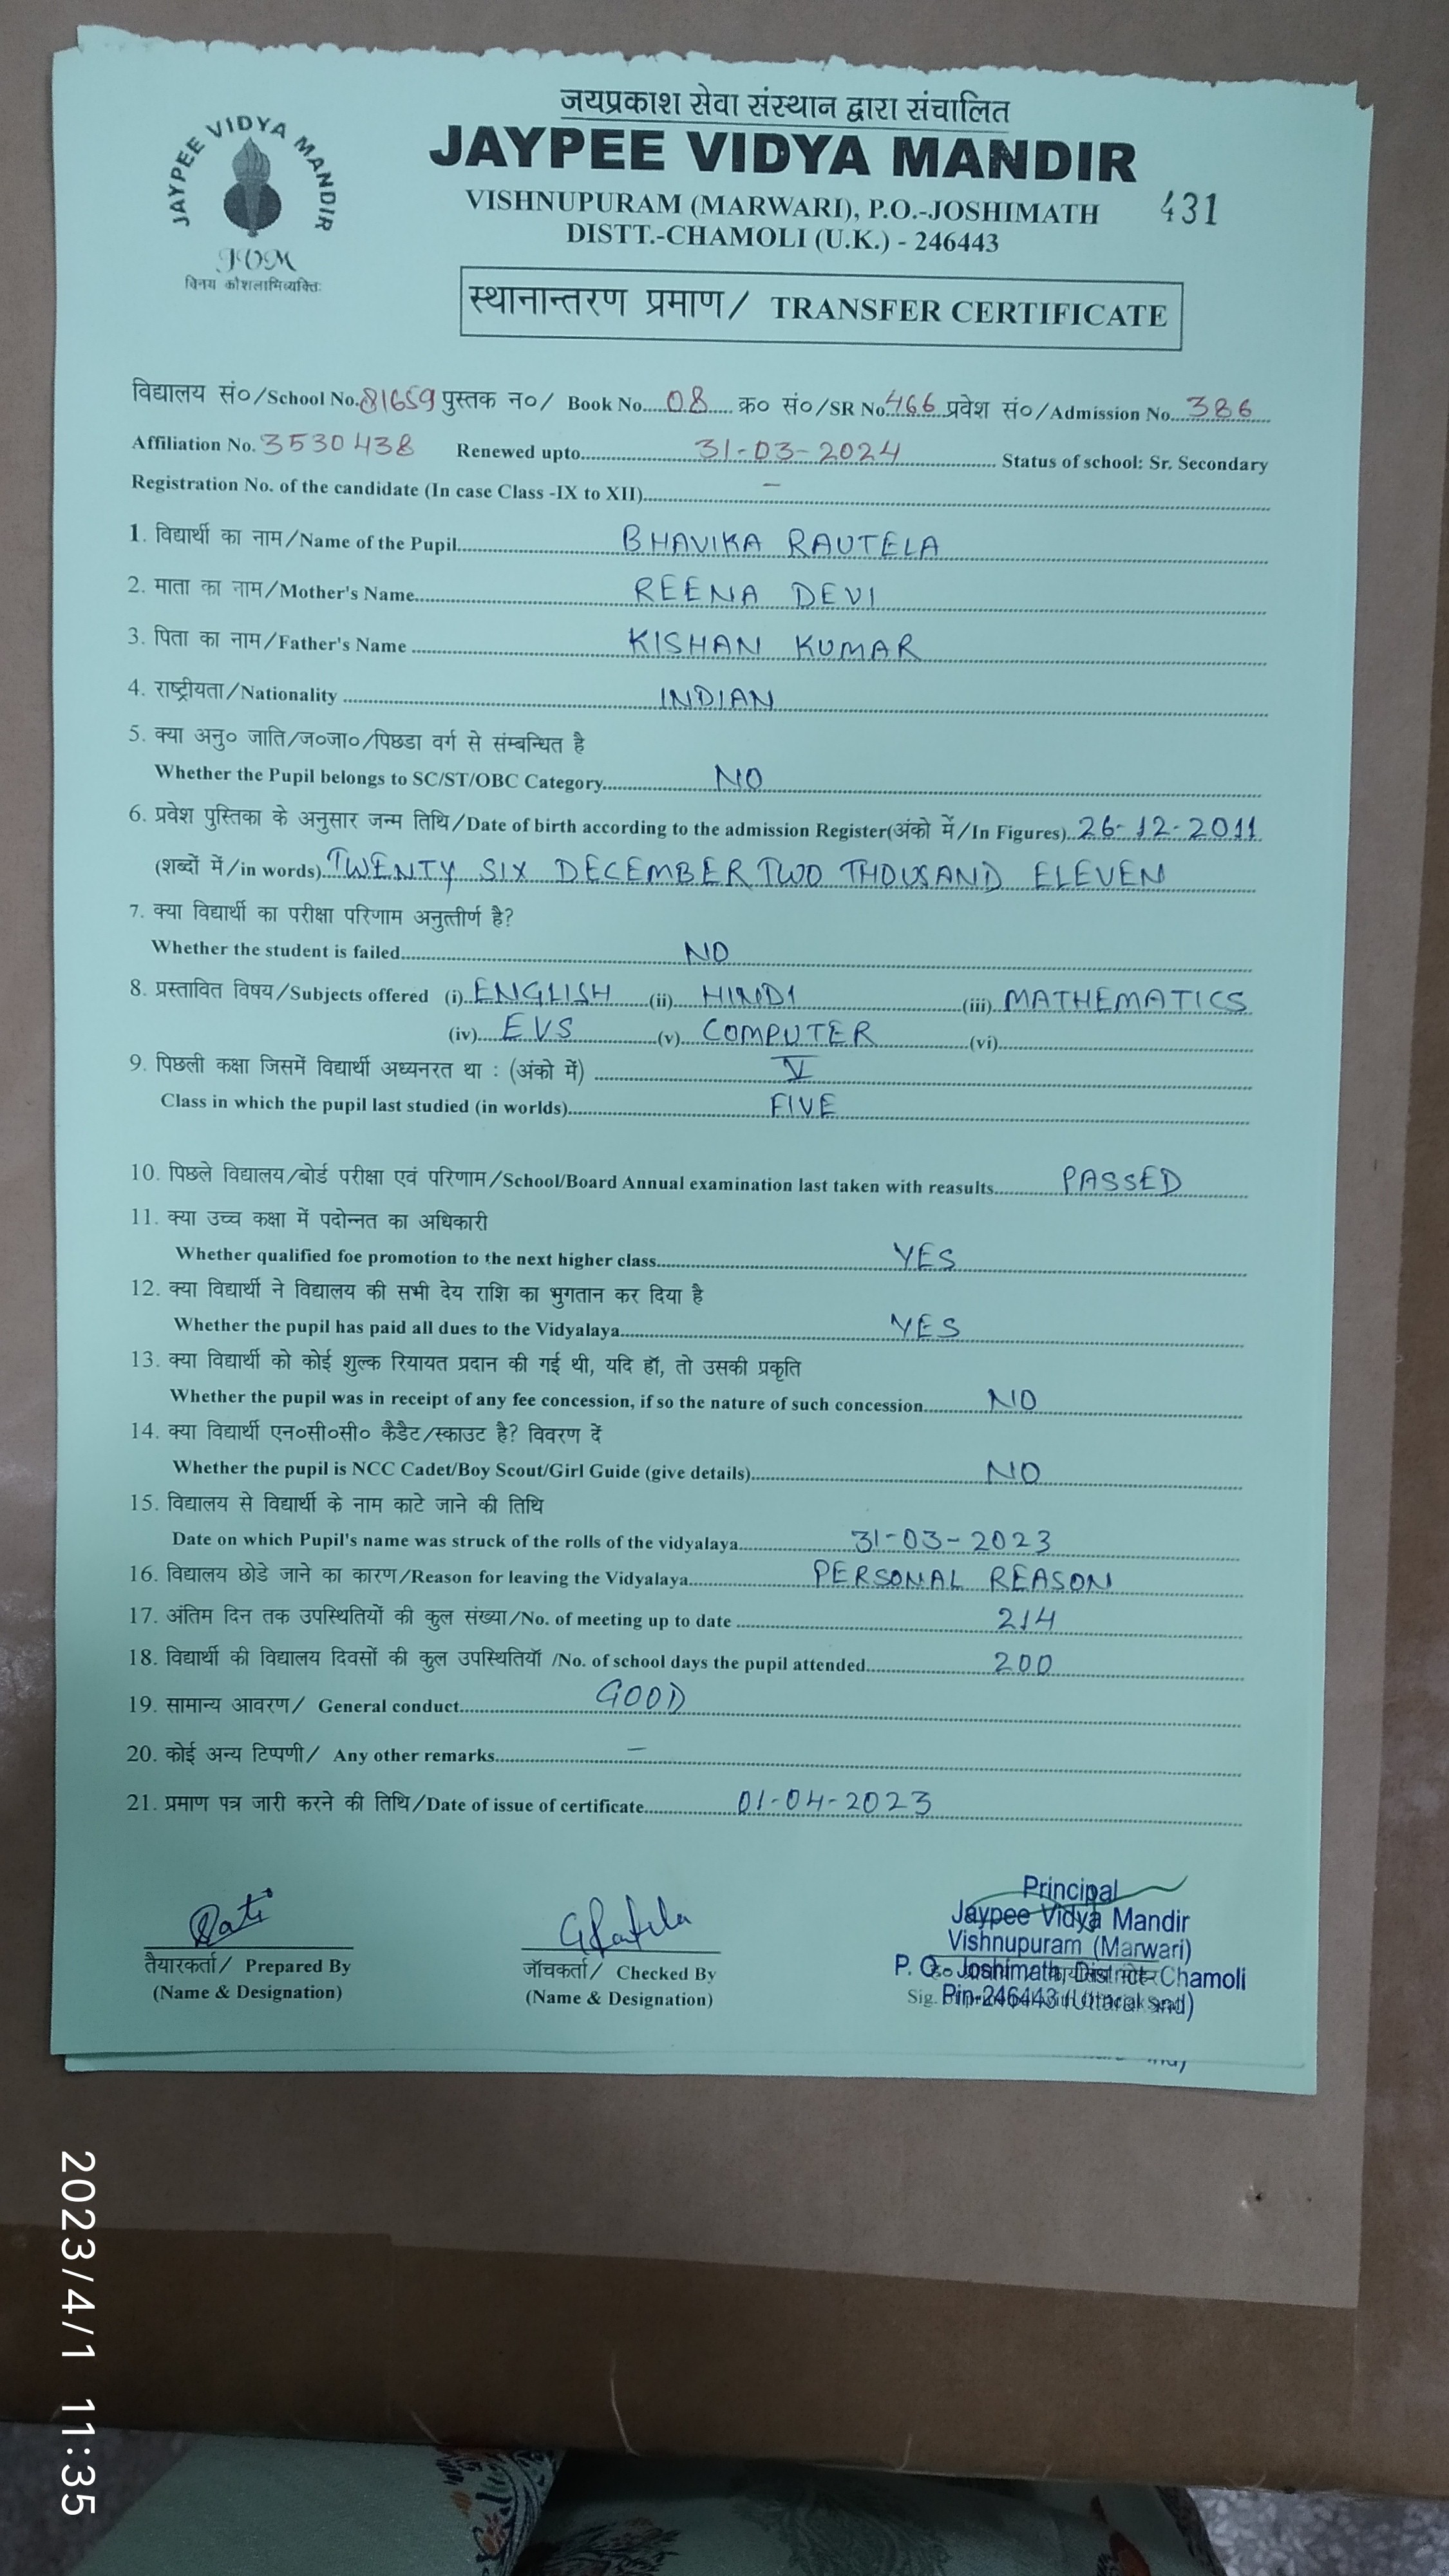 जयप्रकाश सेवा संस्थान द्वारा संचालित
JAYPEE VIDYA MANDIR
JAYPEE VIDYA MANDIR
JVM
विनय कौशलाभिव्यक्तिः
VISHNUPURAM (MARWARI), P.O.-JOSHIMATH 431
DISTT.-CHAMOLI (U.K.) - 246443
स्थानान्तरण प्रमाण/ TRANSFER CERTIFICATE
विद्यालय सं०/School No. 81659 पुस्तक न०/ Book No. 08 क्र० सं०/SR No. 466 प्रवेश सं०/Admission No. 386
Affiliation No. 3530438 Renewed upto 31-03-2024 Status of school: Sr. Secondary
Registration No. of the candidate (In case Class -IX to XII) -
1. विद्यार्थी का नाम/Name of the Pupil BHAVIKA RAUTELA
2. माता का नाम/Mother's Name REENA DEVI
3. पिता का नाम/Father's Name KISHAN KUMAR
4. राष्ट्रीयता/Nationality INDIAN
5. क्या अनु० जाति/ज०जा०/पिछडा वर्ग से संम्बन्धित है
Whether the Pupil belongs to SC/ST/OBC Category NO
6. प्रवेश पुस्तिका के अनुसार जन्म तिथि/Date of birth according to the admission Register(अंको में/In Figures) 26-12-2011
(शब्दों में/in words) TWENTY SIX DECEMBER TWO THOUSAND ELEVEN
7. क्या विद्यार्थी का परीक्षा परिणाम अनुत्तीर्ण है?
Whether the student is failed NO
8. प्रस्तावित विषय/Subjects offered (i) ENGLISH (ii) HINDI (iii) MATHEMATICS
(iv) EVS (v) COMPUTER (vi)
9. पिछली कक्षा जिसमें विद्यार्थी अध्यनरत था : (अंको में) V
Class in which the pupil last studied (in worlds) FIVE
10. पिछले विद्यालय/बोर्ड परीक्षा एवं परिणाम/School/Board Annual examination last taken with reasults PASSED
11. क्या उच्च कक्षा में पदोन्नत का अधिकारी
Whether qualified foe promotion to the next higher class YES
12. क्या विद्यार्थी ने विद्यालय की सभी देय राशि का भुगतान कर दिया है
Whether the pupil has paid all dues to the Vidyalaya YES
13. क्या विद्यार्थी को कोई शुल्क रियायत प्रदान की गई थी, यदि हॉ, तो उसकी प्रकृति
Whether the pupil was in receipt of any fee concession, if so the nature of such concession NO
14. क्या विद्यार्थी एन०सी०सी० कैडैट/स्काउट है? विवरण दें
Whether the pupil is NCC Cadet/Boy Scout/Girl Guide (give details) NO
15. विद्यालय से विद्यार्थी के नाम काटे जाने की तिथि
Date on which Pupil's name was struck of the rolls of the vidyalaya 31-03-2023
16. विद्यालय छोडे जाने का कारण/Reason for leaving the Vidyalaya PERSONAL REASON
17. अंतिम दिन तक उपस्थितियों की कुल संख्या/No. of meeting up to date 214
18. विद्यार्थी की विद्यालय दिवसों की कुल उपस्थितियॉ /No. of school days the pupil attended 200
19. सामान्य आवरण/ General conduct GOOD
20. कोई अन्य टिप्पणी/ Any other remarks -
21. प्रमाण पत्र जारी करने की तिथि/Date of issue of certificate 01-04-2023
तैयारकर्ता/ Prepared By
(Name & Designation)
जॉचकर्ता/ Checked By
(Name & Designation)
Principal
Jaypee Vidya Mandir
Vishnupuram (Marwari)
P. O.- Joshimath, Chamoli
Pin-246443
2023/4/1 11:35